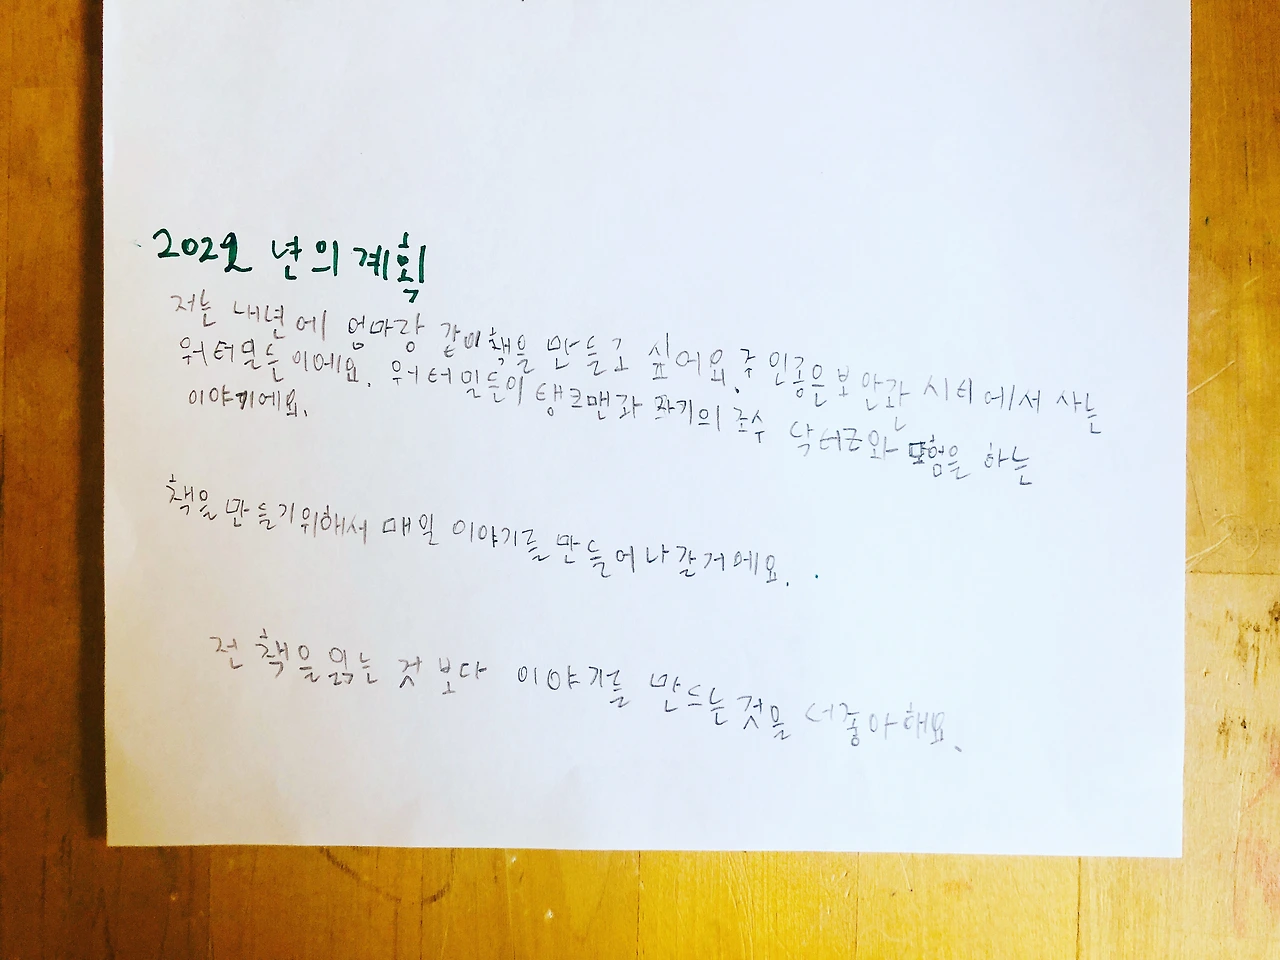 2022 년의 계획
저는 내년에 엄마랑 같이 책을 만들고 싶어요. 주인공은 보안관 시티에서 사는
워터밀든이에요. 워터밀들이 탱크맨과 짜기의 조수 닥터G와 모험을 하는
이야기에요.
책을 만들기위해서 매일 이야기를 만들어나갈거에요.
전 책을 읽는 것 보다 이야기를 만드는것을 더좋아해요.